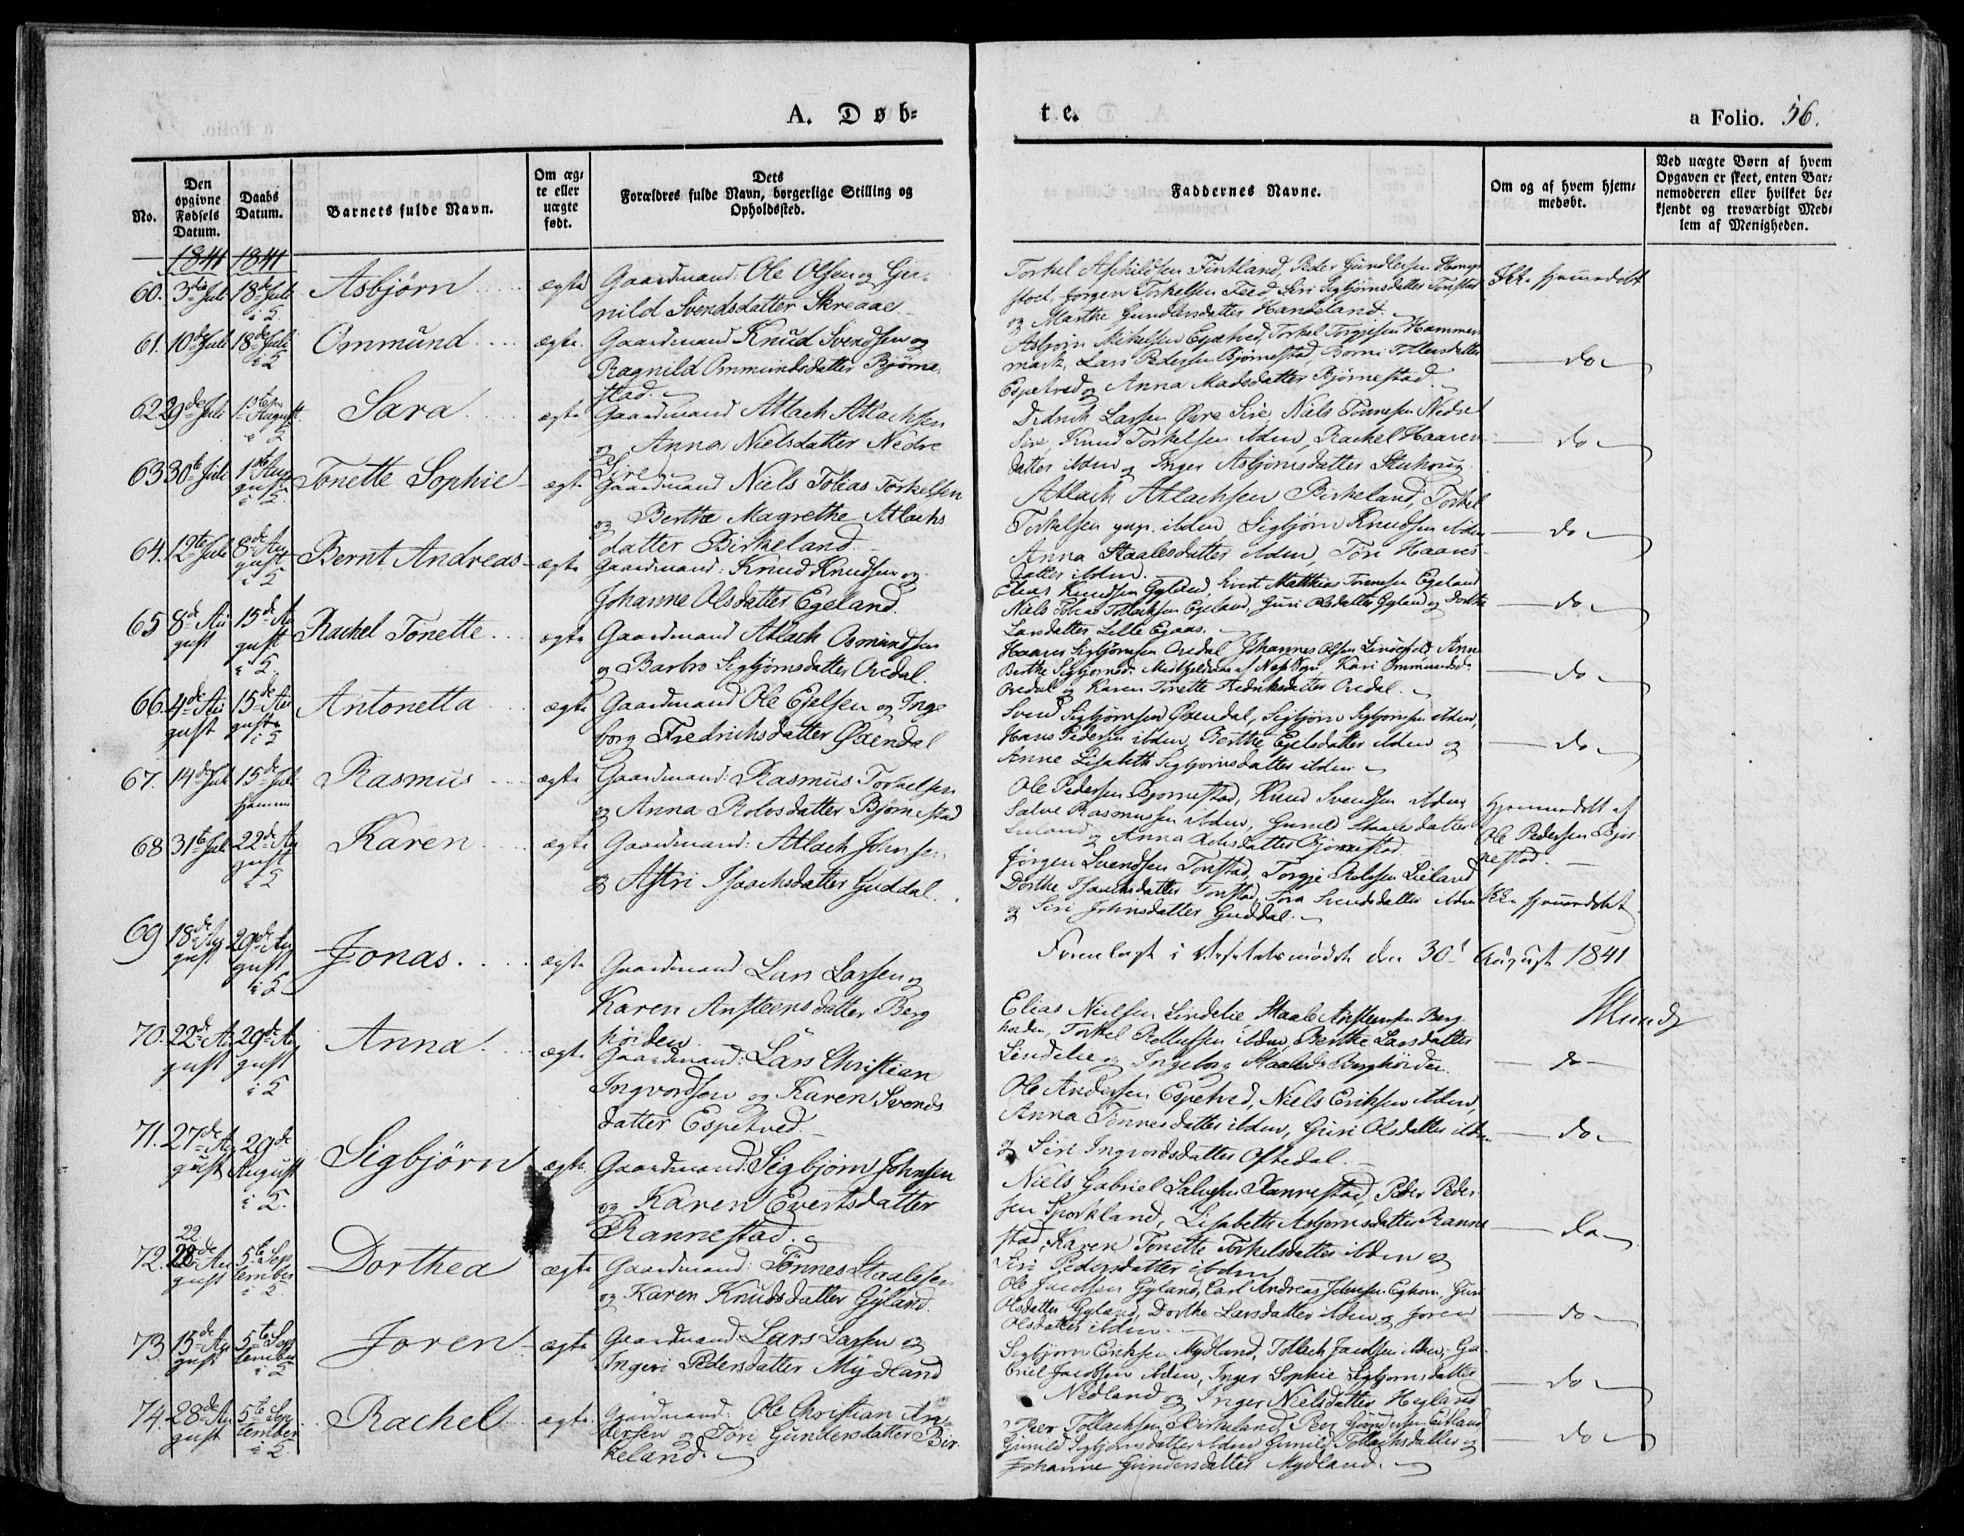 A. Døb-
te.
a Folio. 56.
No.
Den opgivne Fødsels Datum.
Daabs Datum.
Barnets fulde Navn.
Om æg-te eller uægte født.
Dets Forældres fulde Navn, borgerlige Stilling og Opholdssted.
Faddernes Navne.
Om og af hvem hjem-medøbt.
Ved uægte Børn af hvem Opgaven er skeet, enten Bar-nemoderen eller hvilket be-kjendt og troværdigt Med-lem af Menigheden.
1841 1841
60. 3die Juli 18de Juli i 5 Asbjørn ægte
Gaardmand: Ole Olsen og Gu-
nild Svendsdatter Skreaae
Torkel Aschildsen Fintland, Peder Gundersen Hompstoel, Jørgen Torkelsen Feed Siri Sigbjørnsdatter Tonstad
og Marthe Gundersdatter Handeland.
Ikke hjemmedøbt
61. 10de Juli 18de Juli i 5 Ommund ægte
Gaardmand Knud Svendsen og
Ragnild Ommundsdatter Bjørne-
stad.
Asbjørn Mikelsen Espetved, Torkel Torgjesen Hammer-
mark, Lars Pedersen Bjørnestad,
Espetved og Anna Madsdatter Bjørnestad.
do
62. 29de Juli 1ste August i 5 Sara ægte
Gaardmand Atlach Atlachsen
og Anna Nielsdatter Nedre
Sire
Didrick Larsen Øvre Sire Niels Tønnesen Nedre
Sire, Knud Torkelsen ibden, Rachel Haavers
datter ibden og Inger Asbjørnsdatter
do
63. 30te Juli 1ste August i 5. Tonette Sophie ægte
Gaardmand Niels Tobias Torkelsen
og Berthe Magrethe Atlachs
datter Birkeland
Atlach Atlachsen Birkeland, Torkel
Torkelsen yngr. ibden Sigbjørn Knudsen ibden
Anna Staalesdatter ibden, Tori Haavers-
datter ibden.
do
64. 12te Juli 8de August i 5 Bernt Andreas ægte
Gaardmand: Knud Knudsen og
Johanne Olsdatter Egeland.
Elias Knudsen Gyland, Evert Matthias Tønnesen Egeland
Niels Tobias Tollachsen Egeland, Guri Olsdatter Gyland og Dorthe
Larsdatter Lille Egaas.
do
65. 8de August 15de August i 5 Rachel Tonette ægte
Gaardmand Atlach Osmundsen
og Barbro Sigbjørnsdatter Ovedal.
Haaver Sigbjørnsen Ovedal Johannes Olsen Anne
Berthe Sigbjørnsd. Kari Ommundsd.
Ovedal og Karen Tonette Fredriksdatter Ovedal.
do
66. 4de August 15de August i 5 Antonetta ægte
Gaardmand Ole Ejelsen og Inge
borg Fredrichsdatter Øxendal
Svend Sigbjørnsen Øxendal, Sigbjørn Sigbjørnsen ibden,
Hans Pedersen ibden, Berthe Egilsdatter ibden og
Anne Lisabeth Sigbjørnsdatter ibden
do
67. 14de Juli 15de Juli hjemme Rasmus ægte
Gaardmand: Rasmus Torkelsen
og Anna Rolvsdatter Bjørnestad
Ole Pedersen Bjørnestad, Knud Svendsen ibden
Salve Rasmussen ibden, Gunild Staalesdatter
Lieland og Anna Bjørnestad
Hjemmedøbt af
Ole Pedersen Bjør-
nestad.
68. 31te Juli 22de August i 5 Karen ægte
Gaardmand: Atlach Johnsen
og Astri Isaachsdatter Guddal.
Jørgen Svendsen Tonstad, Torgje Rolvsen Lieland
Dorthe Isaachsdatter Tonstad, Sara Svendsdatter ibden
og Siri Johnsdatter Guddal.
Ikke hjemmedøbt
Fremlagt i den 30te August 1841
Munch
69. 18de August 29de August i 5 Jonas. ægte
Gaardmand Lars Larsen og
Karen Ansteensdatter Berg
høiden
Elias Nielsen Lindelie Staale Ansteensen Berg-
høiden, Torkel ibden, Berthe Larsdatter
Lindelie og Ingeborg Staalesd. Berghøiden.
do
70. 22de August 29de August i 5 Anna ægte
Gaardmand: Lars Christian
Ingvordsen og Karen Svends
datter Espetved
Ole Andersen Espetved, Niels Eriksen ibden,
Anna Tønnesdatter ibden, Guri Olsdatter ibden
og Siri Ingvordsdatter Oftedal.
do
71. 27de August 29de August i 5. Sigbjørn ægte
Gaardmand: Sigbjørn Johnsen
og Karen Evertsdatter
Rannestad.
Niels Gabriel Salvesen Rannestad, Peder Peder-
sen Sporkland, Lisabeth Asbjørnsdatter Ranne
stad, Karen Tonette Torkelsdatter ibden og
Siri Pedersdatter ibden
do
72. 22de August 5te September i 5. Dorthea ægte
Gaardmand: Tønnes Staalesen
og Karen Knudsdatter Gyland.
Ole Jacobsen Gyland, Carl Andreas Jensen Eghorn, Guri
Olsdatter Gyland, Dorthe Larsdatter ibden og Joren
Olsdatter ibden.
do
73. 15de August 5te September i 5 Joren ægte
Gaardmand Lars Larsen og
Ingeri Pedersdatter Mydland
Sigbjørn Eriksen Mydland, Tollach Jacobsen ibden, Ga-
briel Jacobsen ibden, Inger Sophie Sigbjørnsdatter
Nedland og Inger Nielsdatter Hegland
do
74. 28de August 5te September i 5 Rachel ægte
Gaardmand: Ole Christian An-
dersen og Tori Gundersdatter Bir-
keland.
Peer Tollachsen Birkeland, Peer Gundersen Eitland
Gunild Sigbjørnsdatter ibden Gunild Tollachsdatter og
Johanne Gundersdatter Mydland.
do